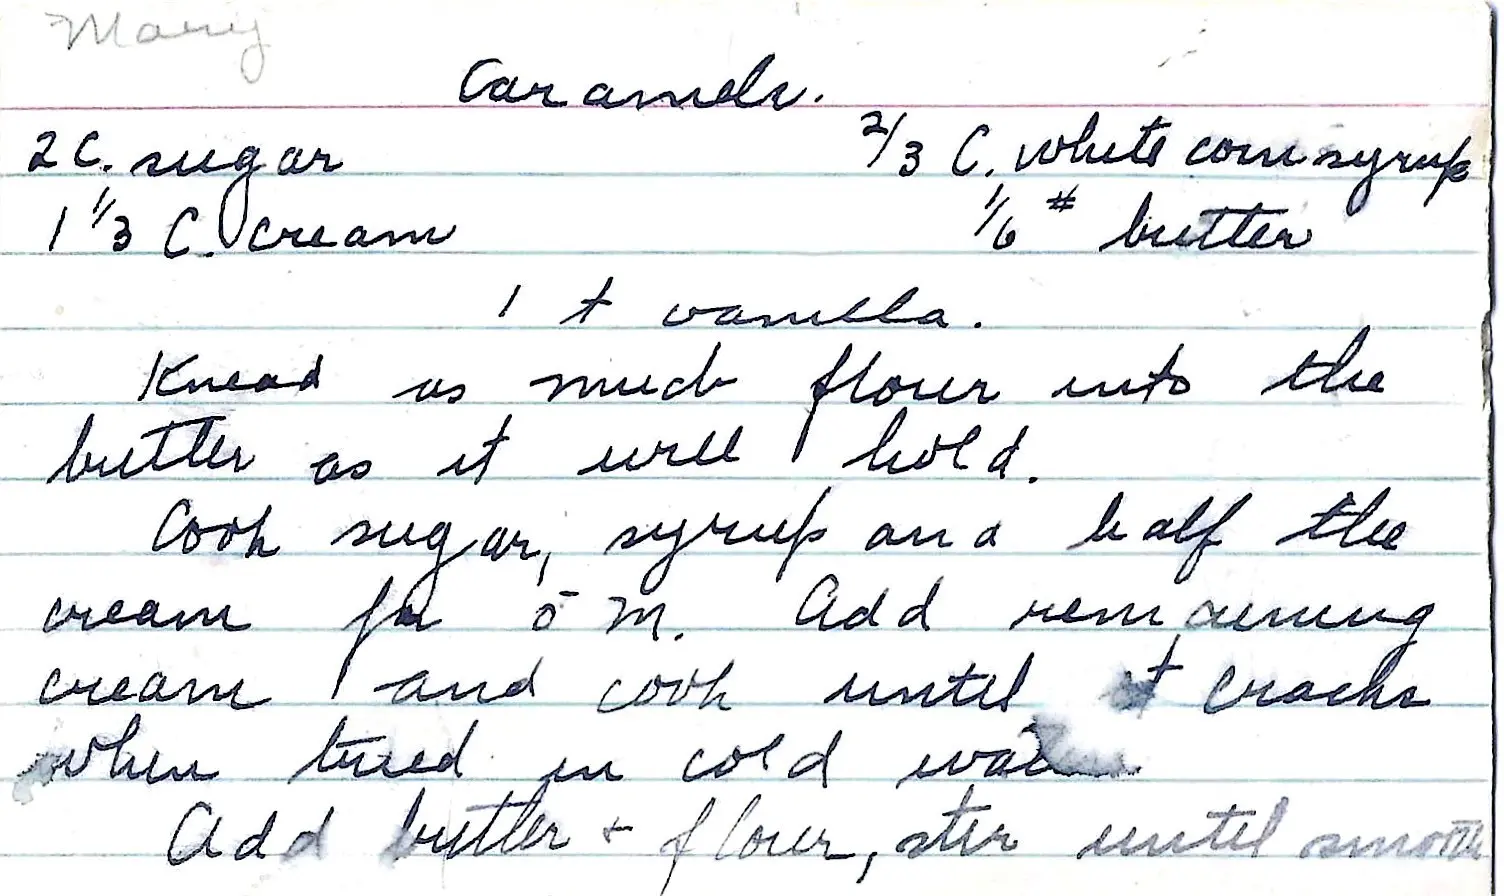 Mary
Caramels.
2 C. sugar 2/3 C. white corn syrup
1 1/3 C. cream 1/6 # butter
1 t vanilla.
Knead as much flour into the
butter as it will hold.
Cook sugar, syrup and half the
cream for 5 M. Add remaining
cream and cook until it cracks
when tried in cold water
Add butter + flour, stir until smooth